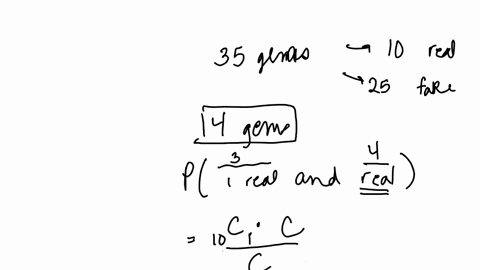 35 gems → 10 real
→ 25 fake
14 gems
3 4
P( 1 real and real )
= 10C1 · C
C